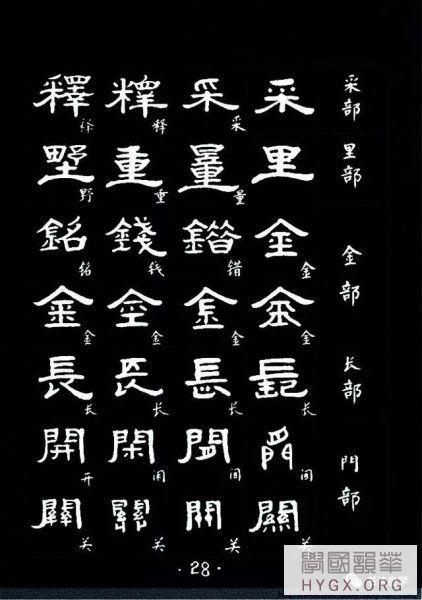 采部 采 采采 釋释 釋释
里部 里 量量 重重 野野
金部 金金 錯错 錢钱 銘铭
金金 金金 金金 金金
长部 長长 長长 長长 長长
門部 間间 間间 閑闲 開开
關关 關关 關关 關关
·28·
學國韻華
HYGX.ORG